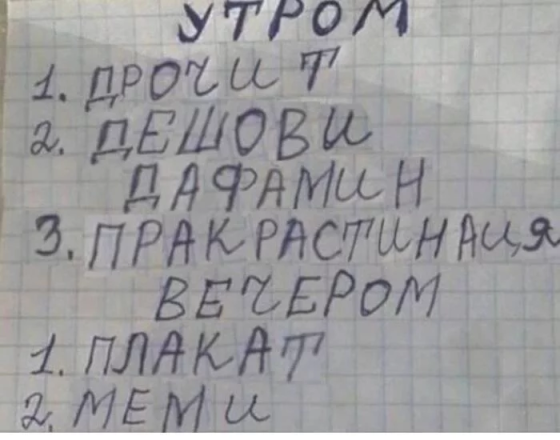 УТРОМ
1. ДРОЧИТ
2. ДЕШОВИ
ДАФАМИН
3. ПРАКРАСТИНАЦИЯ
ВЕЧЕРОМ
1. ПЛАКАТ
2. МЕМИ